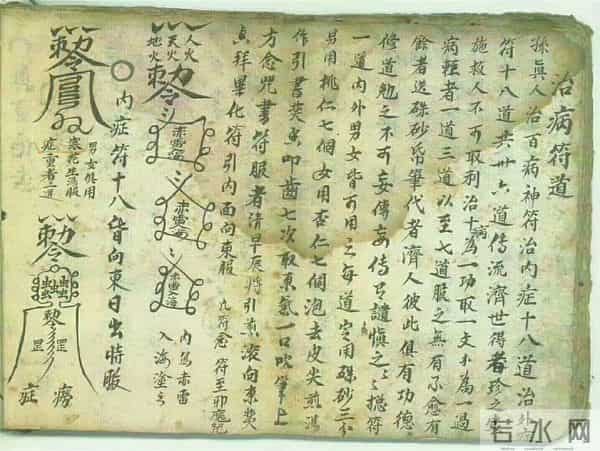 治病符道
孫眞人治百病神符治内症十八道治外症
符十八道共卅六道傳流濟世得者珍之
施救人不可取利治十病為一功取一文為一過
病輕者一道三道以至七道服之無有不愈有
餘者送硃砂筆代者濟人彼此俱有功德
修道勉之不可妄傳妄傳有譴慎之々摠符
一道内外男女皆可用之每道定用硃砂三分
男用桃仁七個女用杏仁七個泡去皮尖煎湯
作引書焚香叩齒七次取東氣一口吹筆上
方念咒書符服者清早辰將引煎滚向東焚
拜畢化符引内面向東服
符至邪魔
人火
天火
地火
赤雷
内寫赤雷
入海塗之
内症符十八皆向東日出時服
男女俱用
症重者二道
罡
罡
癆
症
若水网